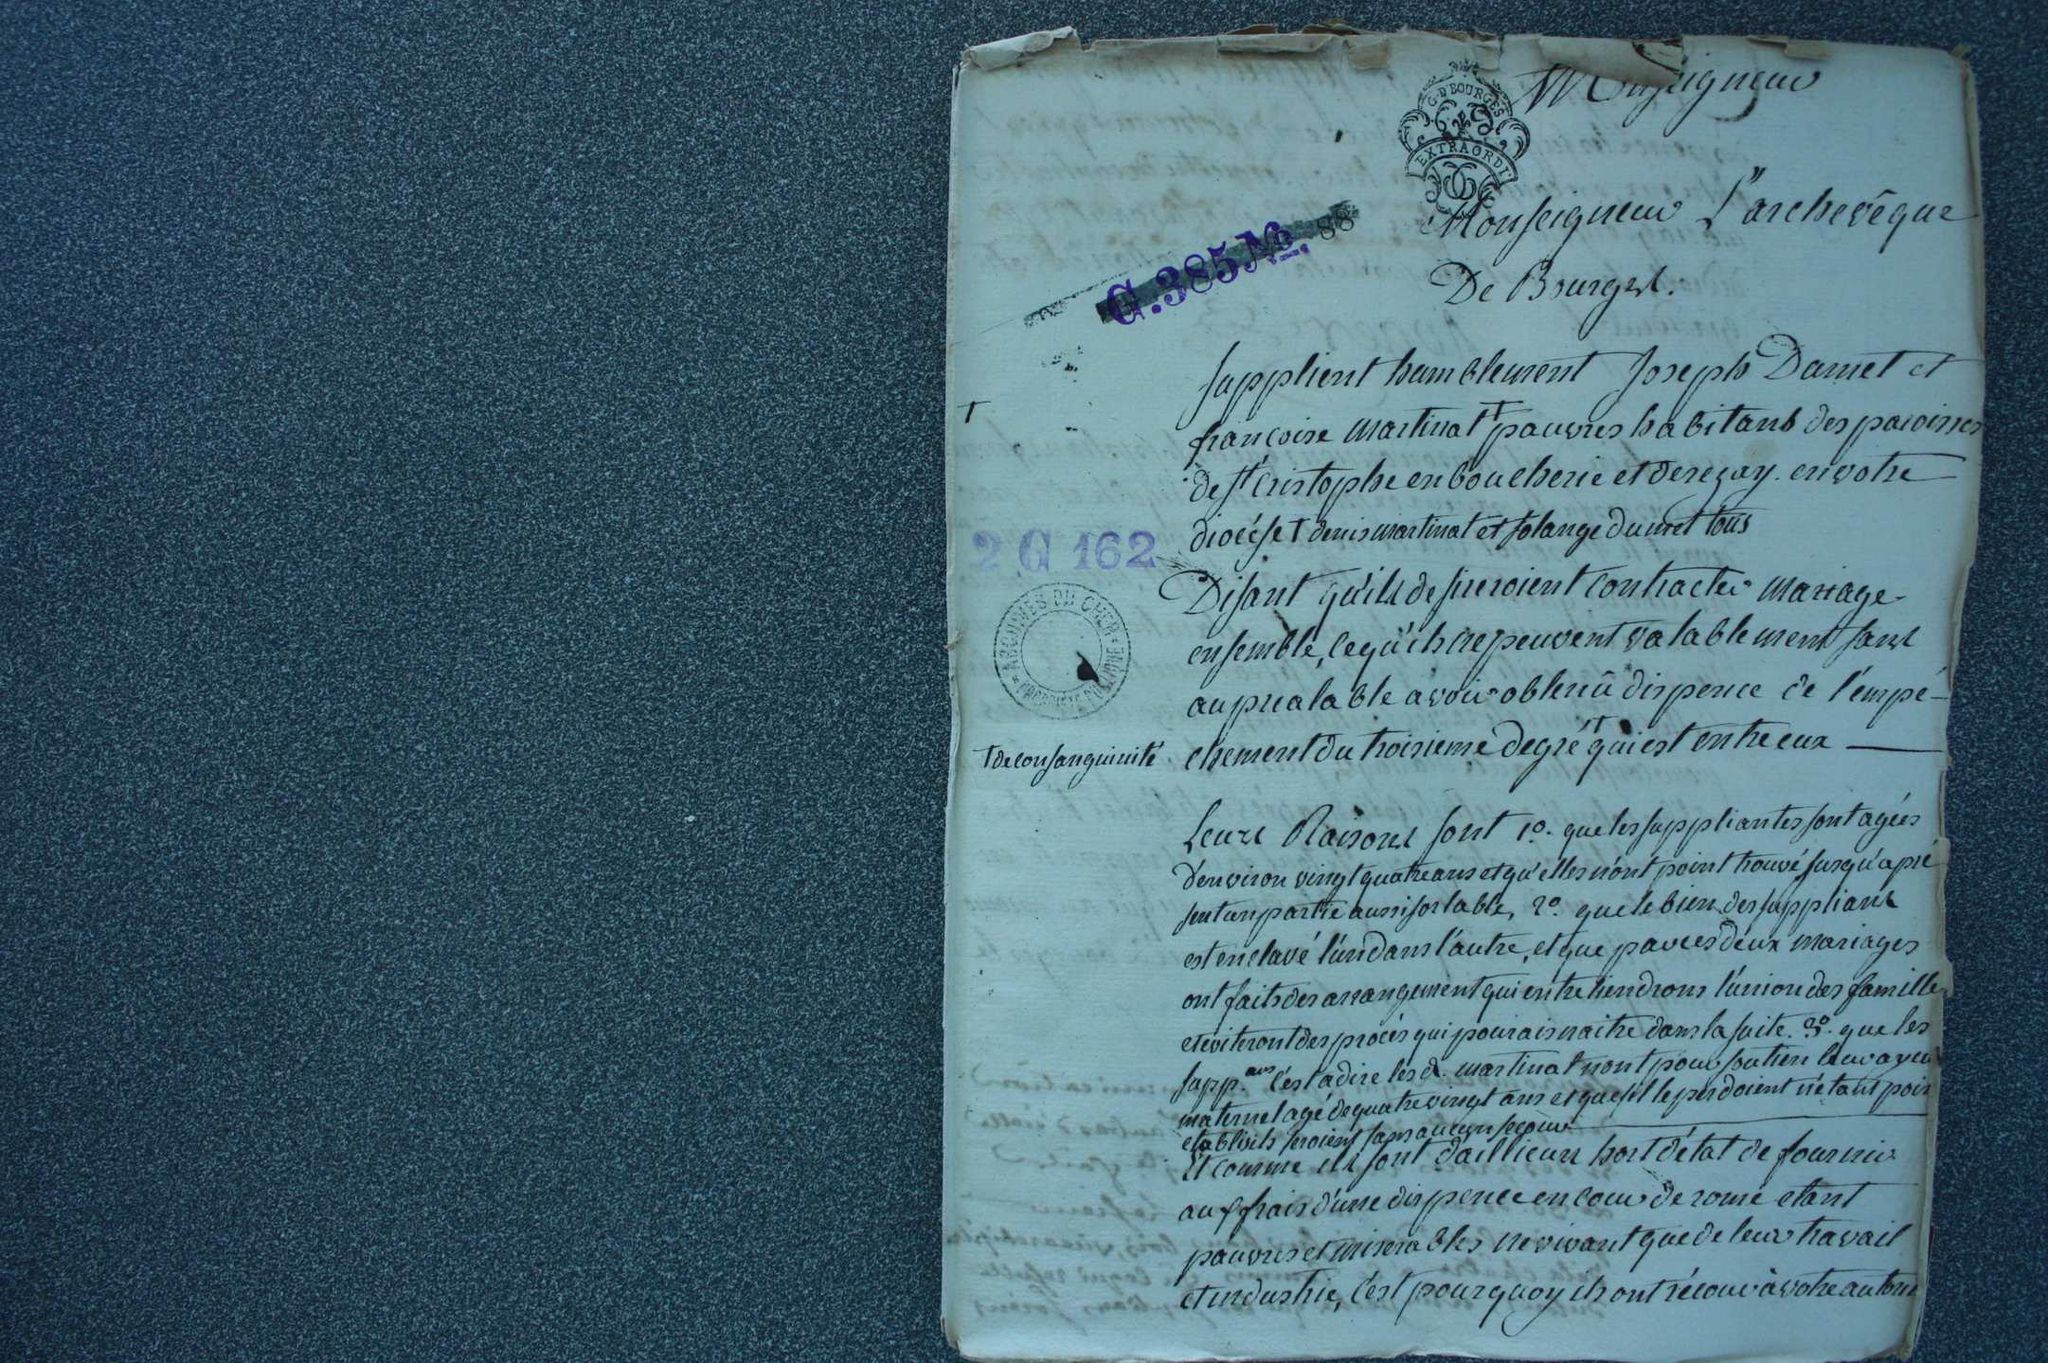 Monseigneur
G. D BOURGES
EXTRAORDI
Monseigneur L'archevêque
De Bourges.
G. 385 No. 88
supplient humblement Joseph Dumet et
françoise martinat † pauvres habitans des paroisses
de st Cristophe en boucherie et de rezay en votre
diocèse † denis martinat et solange dumet tous
2 G 162
Disant qu'ils desireroient contracter mariage
ensemble, ce qu'ils ne peuvent valablement sans
au prealable avoir obtenû dispence de l'empé-
chement du troisieme degré † qui est entre eux
† de consanguinité
ARCHIVES DU CHER
Leurs Raisons sont 1o. que les suppliantes sont agées
d'environ vingt quatre ans et qu'elles n'ont point trouvé jusqu'a pré
sent un partie aussi sortable, 2o. que le bien des suppliant
est enclavé l'un dans l'autre, et que par ces deux mariages
ont faits des arrangement qui entretiendrons l'union des famille
et eviteront des procès qui pourais naitre dans la suite. 3o. que les
supp.ans c'est a dire les d. martinat n'ont pour soutien leur ayeul
maternel agé de quatre vingt ans et que s'il le perdoient n'etant poin
etablis ils seroient sans aucun secour
Et comme ils sont d'aillieurs hors d'état de fournir
aux frais d'une dispence en cour de rome etant
pauvres et miserables ne vivant que de leur travail
et industrie, c'est pourquoy ils ont récour à votre autori